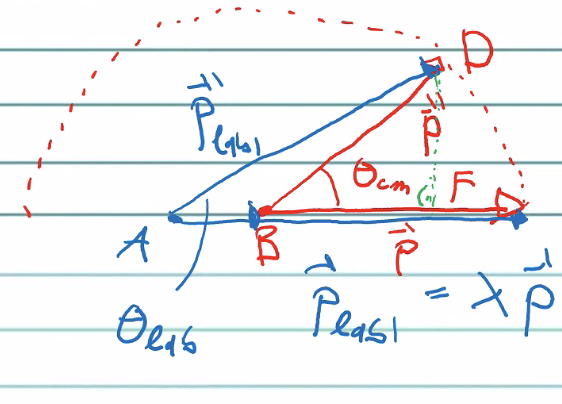 D
P⃗''lab1
P⃗''
θcm
F
A
B
P⃗
θlab
P⃗lab1 = λ P⃗